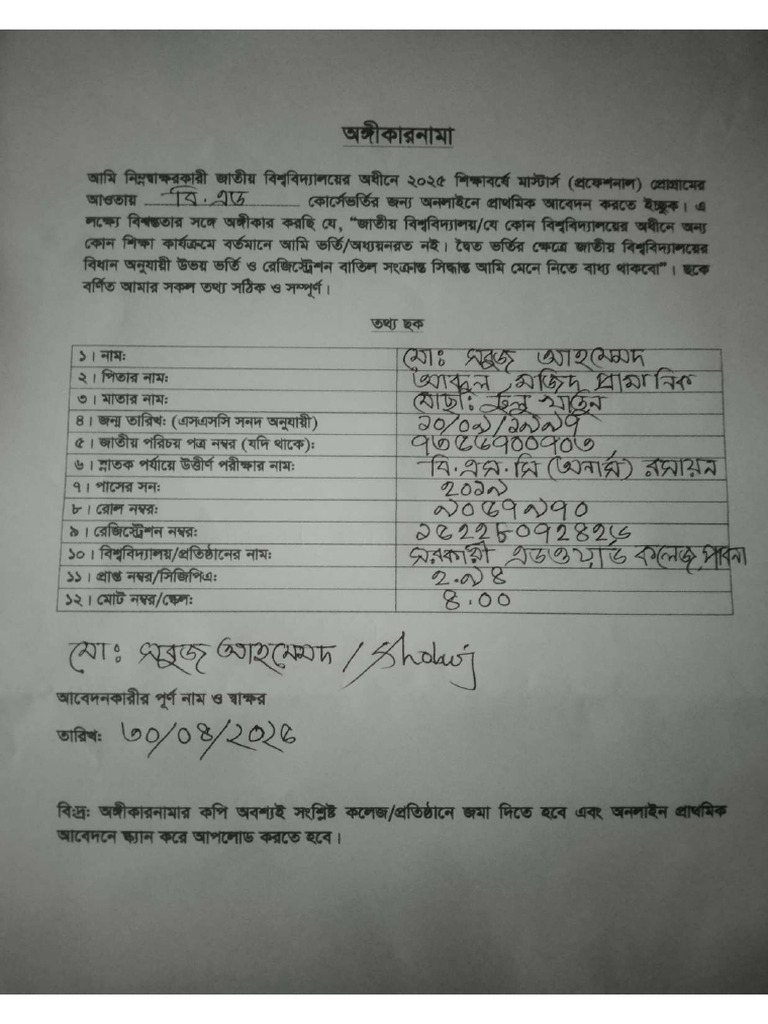 অঙ্গীকারনামা
আমি নিম্নস্বাক্ষরকারী জাতীয় বিশ্ববিদ্যালয়ের অধীনে ২০২৫ শিক্ষাবর্ষে মাস্টার্স (প্রফেশনাল) প্রোগ্রামের
আওতায় বি.এড কোর্সেভর্তির জন্য অনলাইনে প্রাথমিক আবেদন করতে ইচ্ছুক। এ
লক্ষ্যে বিশ্বস্ততার সঙ্গে অঙ্গীকার করছি যে, “জাতীয় বিশ্ববিদ্যালয়/যে কোন বিশ্ববিদ্যালয়ের অধীনে অন্য
কোন শিক্ষা কার্যক্রমে বর্তমানে আমি ভর্তি/অধ্যয়নরত নই। দ্বৈত ভর্তির ক্ষেত্রে জাতীয় বিশ্ববিদ্যালয়ের
বিধান অনুযায়ী উভয় ভর্তি ও রেজিস্ট্রেশন বাতিল সংক্রান্ত সিদ্ধান্ত আমি মেনে নিতে বাধ্য থাকবো”। ছকে
বর্ণিত আমার সকল তথ্য সঠিক ও সম্পূর্ণ।
তথ্য ছক
১। নাম: মো: সবুজ আহমেমদ
২। পিতার নাম: আব্দুল মজিদ প্রামানিক
৩। মাতার নাম: মোছা: টুলু খাতুন
৪। জন্ম তারিখ: (এসএসসি সনদ অনুযায়ী) ২০/০৯/১৯৯৭
৫। জাতীয় পরিচয় পত্র নম্বর (যদি থাকে): ৭৩৫৫৭০০৭০৩
৬। স্নাতক পর্যায়ে উত্তীর্ণ পরীক্ষার নাম: বি.এস.সি (অনার্স) রসায়ন
৭। পাসের সন: ২০১৯
৮। রোল নম্বর: ৯০৫৭৯৭০
৯। রেজিস্ট্রেশন নম্বর:
১০। বিশ্ববিদ্যালয়/প্রতিষ্ঠানের নাম: সরকারী এডওয়ার্ড কলেজ,পাবনা
১১। প্রাপ্ত নম্বর/সিজিপিএ: ২.৯৪
১২। মোট নম্বর/স্কেল: ৪.০০
মো: সবুজ আহমেমদ /
আবেদনকারীর পূর্ণ নাম ও স্বাক্ষর
তারিখ: ৩০/০৪/২০২৫
বি:দ্র: অঙ্গীকারনামার কপি অবশ্যই সংশ্লিষ্ট কলেজ/প্রতিষ্ঠানে জমা দিতে হবে এবং অনলাইন প্রাথমিক
আবেদনে স্ক্যান করে আপলোড করতে হবে।